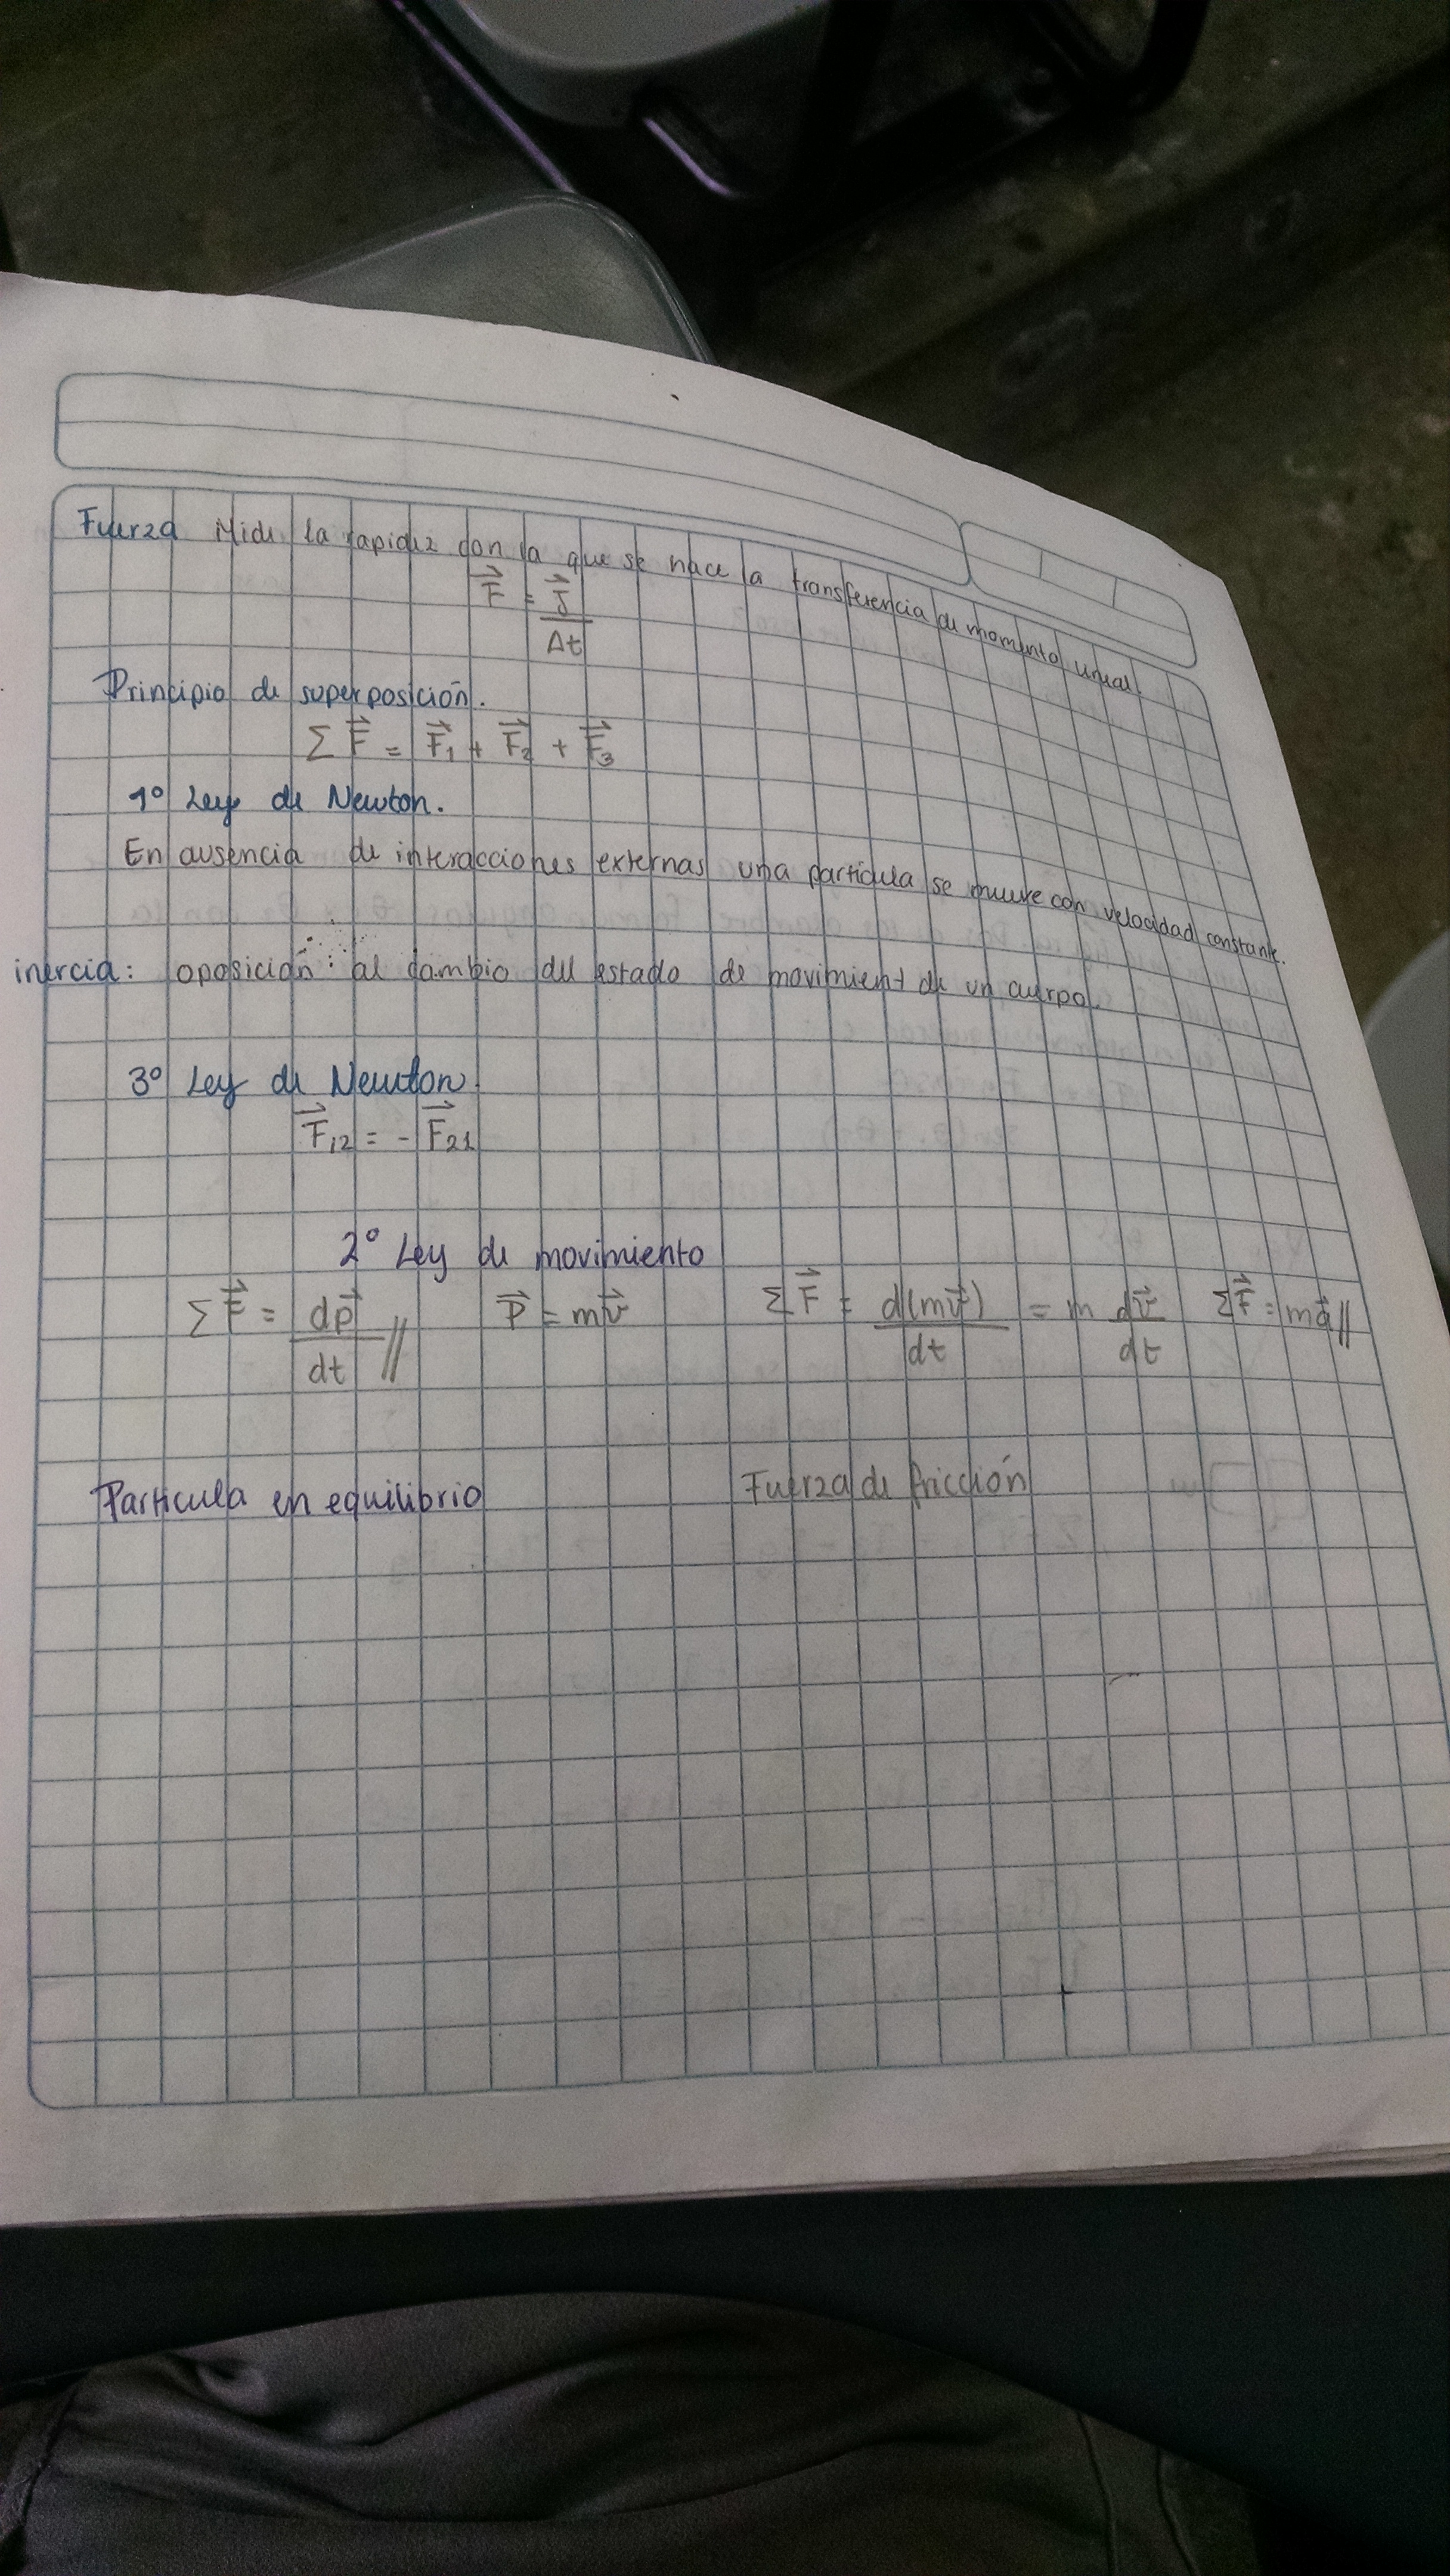 Fuerza Mide la rapidez con la que se hace la transferencia de momento lineal.
F⃗ = J⃗/Δt
Principio de superposición.
Σ F⃗ = F⃗₁ + F⃗₂ + F⃗₃
1º Ley de Newton.
En ausencia de interacciones externas una partícula se mueve con velocidad constante.
inercia: oposición al cambio del estado de movimient de un cuerpo.
3º Ley de Newton
F⃗₁₂ = - F⃗₂₁
2º Ley de movimiento
Σ F⃗ = dp⃗/dt // P⃗ = mv⃗ Σ F⃗ = d(mv⃗)/dt = m dv⃗/dt ΣF⃗ = ma⃗//
Particula en equilibrio Fuerza de fricción